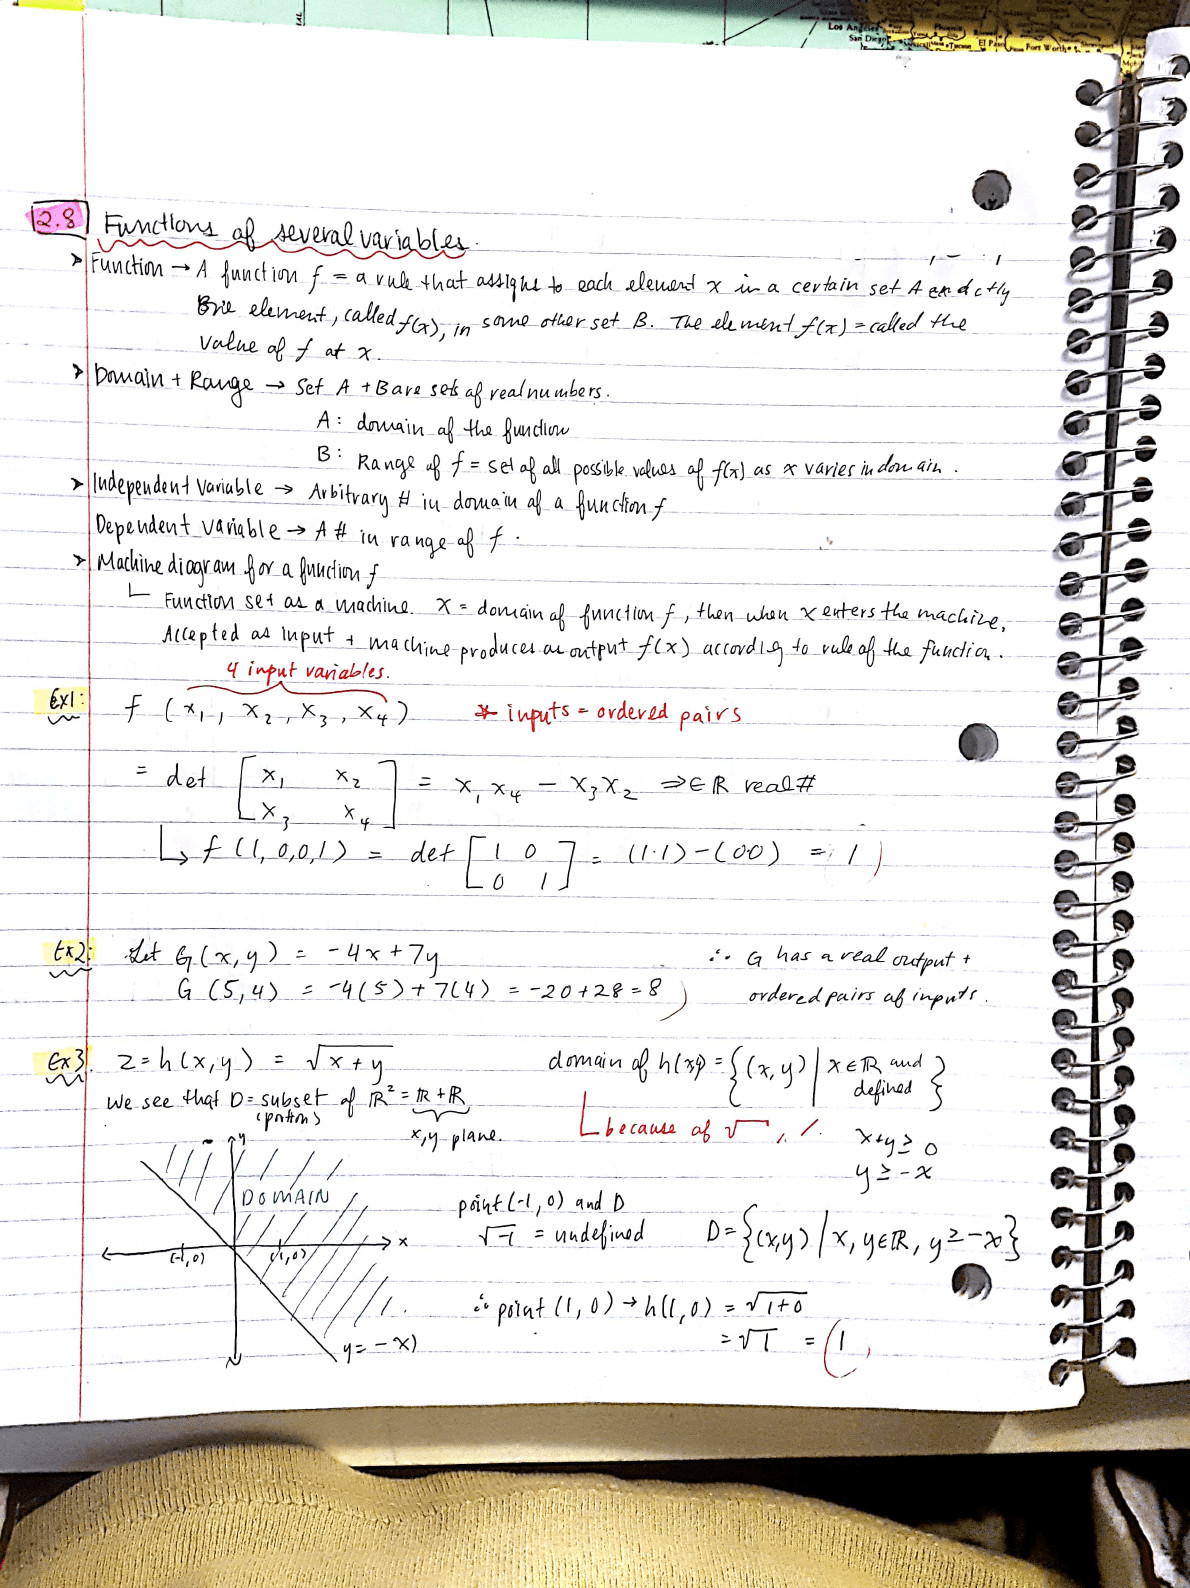 Los Angeles
San Diego
Tucson
El Paso
Fort Worth
Phoenix
2.8 Functions of several variables.
➤ Function → A function f = a rule that assigns to each element x in a certain set A exactly
One element, called f(x), in some other set B. The element f(x) = called the
value of f at x.
➤ Domain + Range → Set A + B are sets of real numbers.
A: domain of the function
B: Range of f = set of all possible values of f(x) as x varies in domain.
➤ Independent Variable → Arbitrary # in domain of a function f
Dependent variable → A # in range of f.
➤ Machine diagram for a function f
└ Function set as a machine. X = domain of function f, then when x enters the machine,
Accepted as input + machine produces an output f(x) according to rule of the function.
4 input variables.
Ex1: f (x₁, x₂, x₃, x₄) * inputs = ordered pairs
= det [x₁ x₂
x₃ x₄] = x₁x₄ − x₃x₂ ⇒ ∈ ℝ real #
↳ f(1,0,0,1) = det [1 0
0 1] = (1·1)−(00) = 1
Ex2: Let G(x,y) = -4x+7y ∴ G has a real output +
G(5,4) = -4(5)+7(4) = -20+28=8 ordered pairs of inputs.
Ex3. z=h(x,y) = √x+y domain of h(x,y) = {(x,y) | x∈ℝ and
defined}
We see that D = subset of ℝ² = ℝ+ℝ
(portion) x,y plane. └ because of √ x+y ≥ 0
y ≥ -x
y
DOMAIN point (-1,0) and D
√-1 = undefined D={(x,y) | x,y∈ℝ, y≥-x}
x
(-1,0) (1,0)
∴ point (1,0) → h(1,0) = √1+0
y=-x = √1 = 1